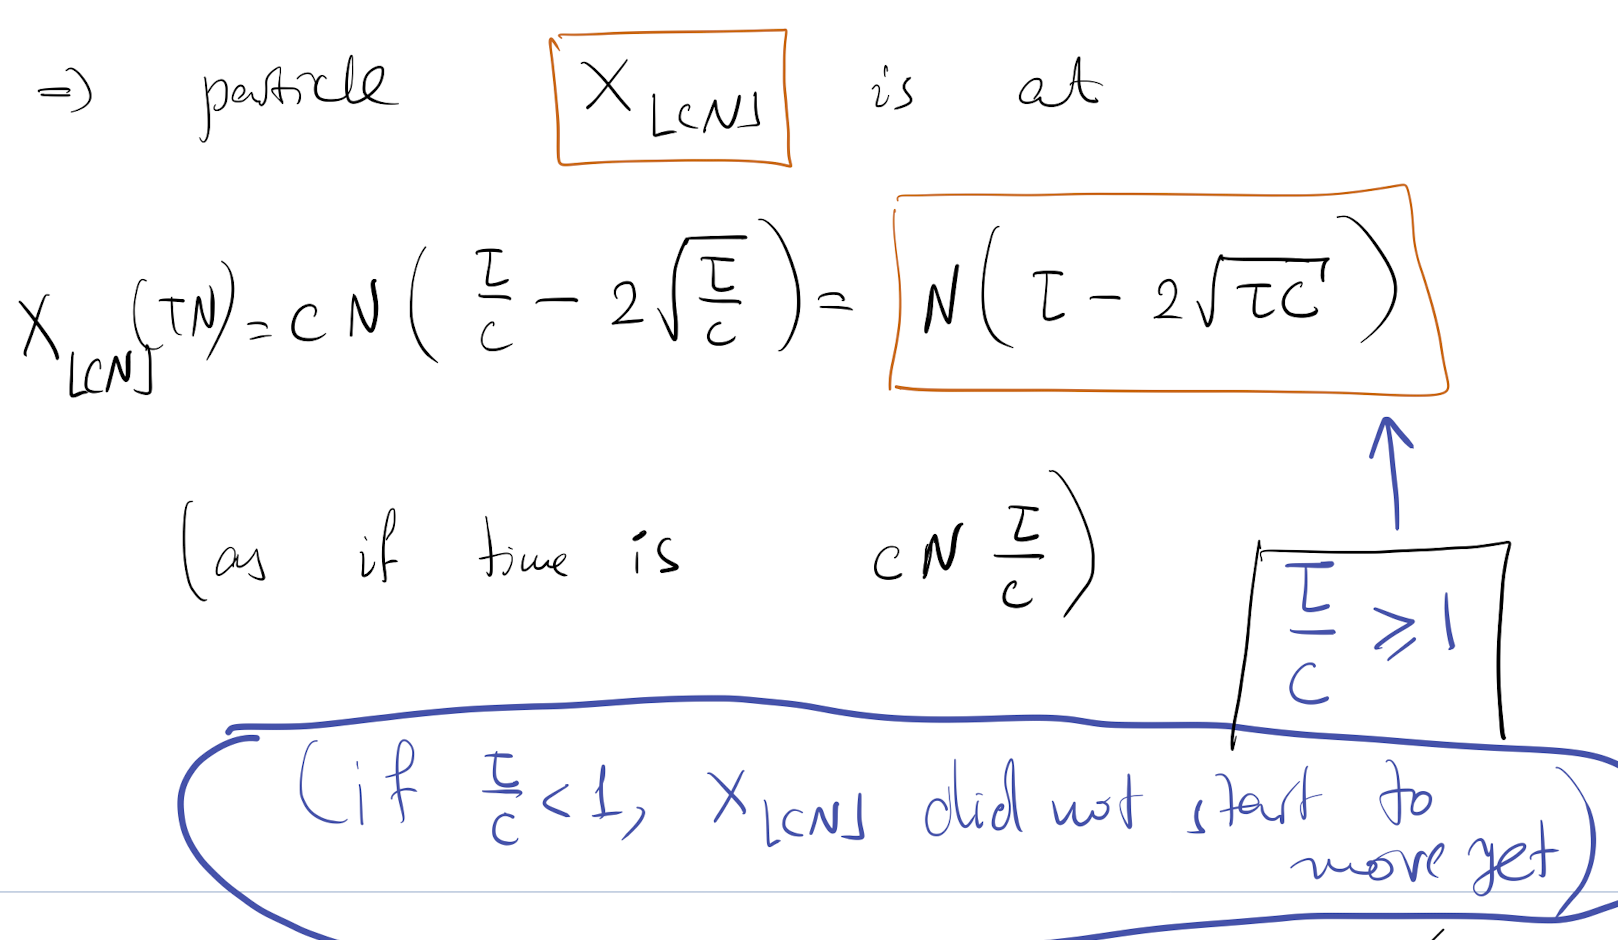 ⇒ particle X_{⌊CN⌋} is at
X_{⌊CN⌋}(τN) = CN(τ/C − 2√(τ/C)) = N(τ − 2√(τC))
(as if time is CN τ/C)
τ/C ⩾ 1
(if τ/C < 1, X_{⌊CN⌋} did not start to
move yet)